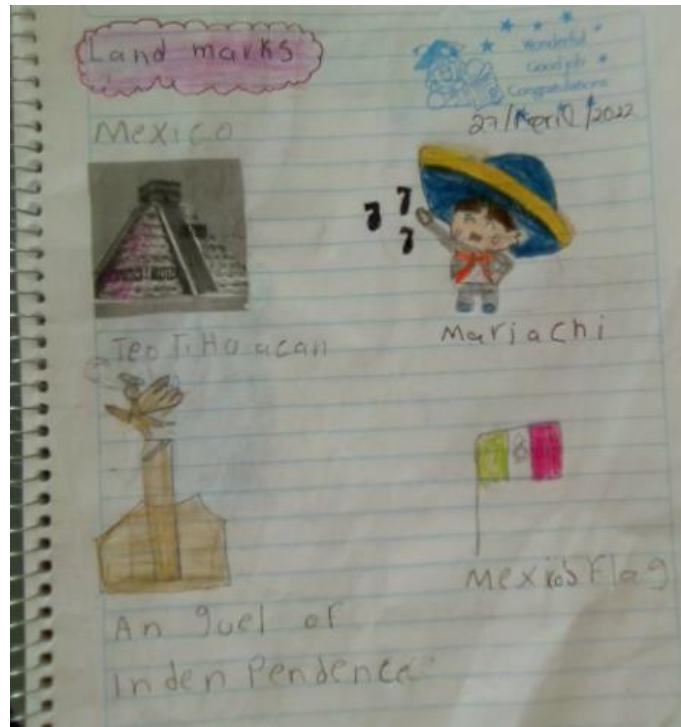 Land marks
Wonderful
Good job
Congratulations
27/April/2022
Mexico
TeoTiHuacan
Mariachi
Mexico's Flag
An guel of
Inden Pendence